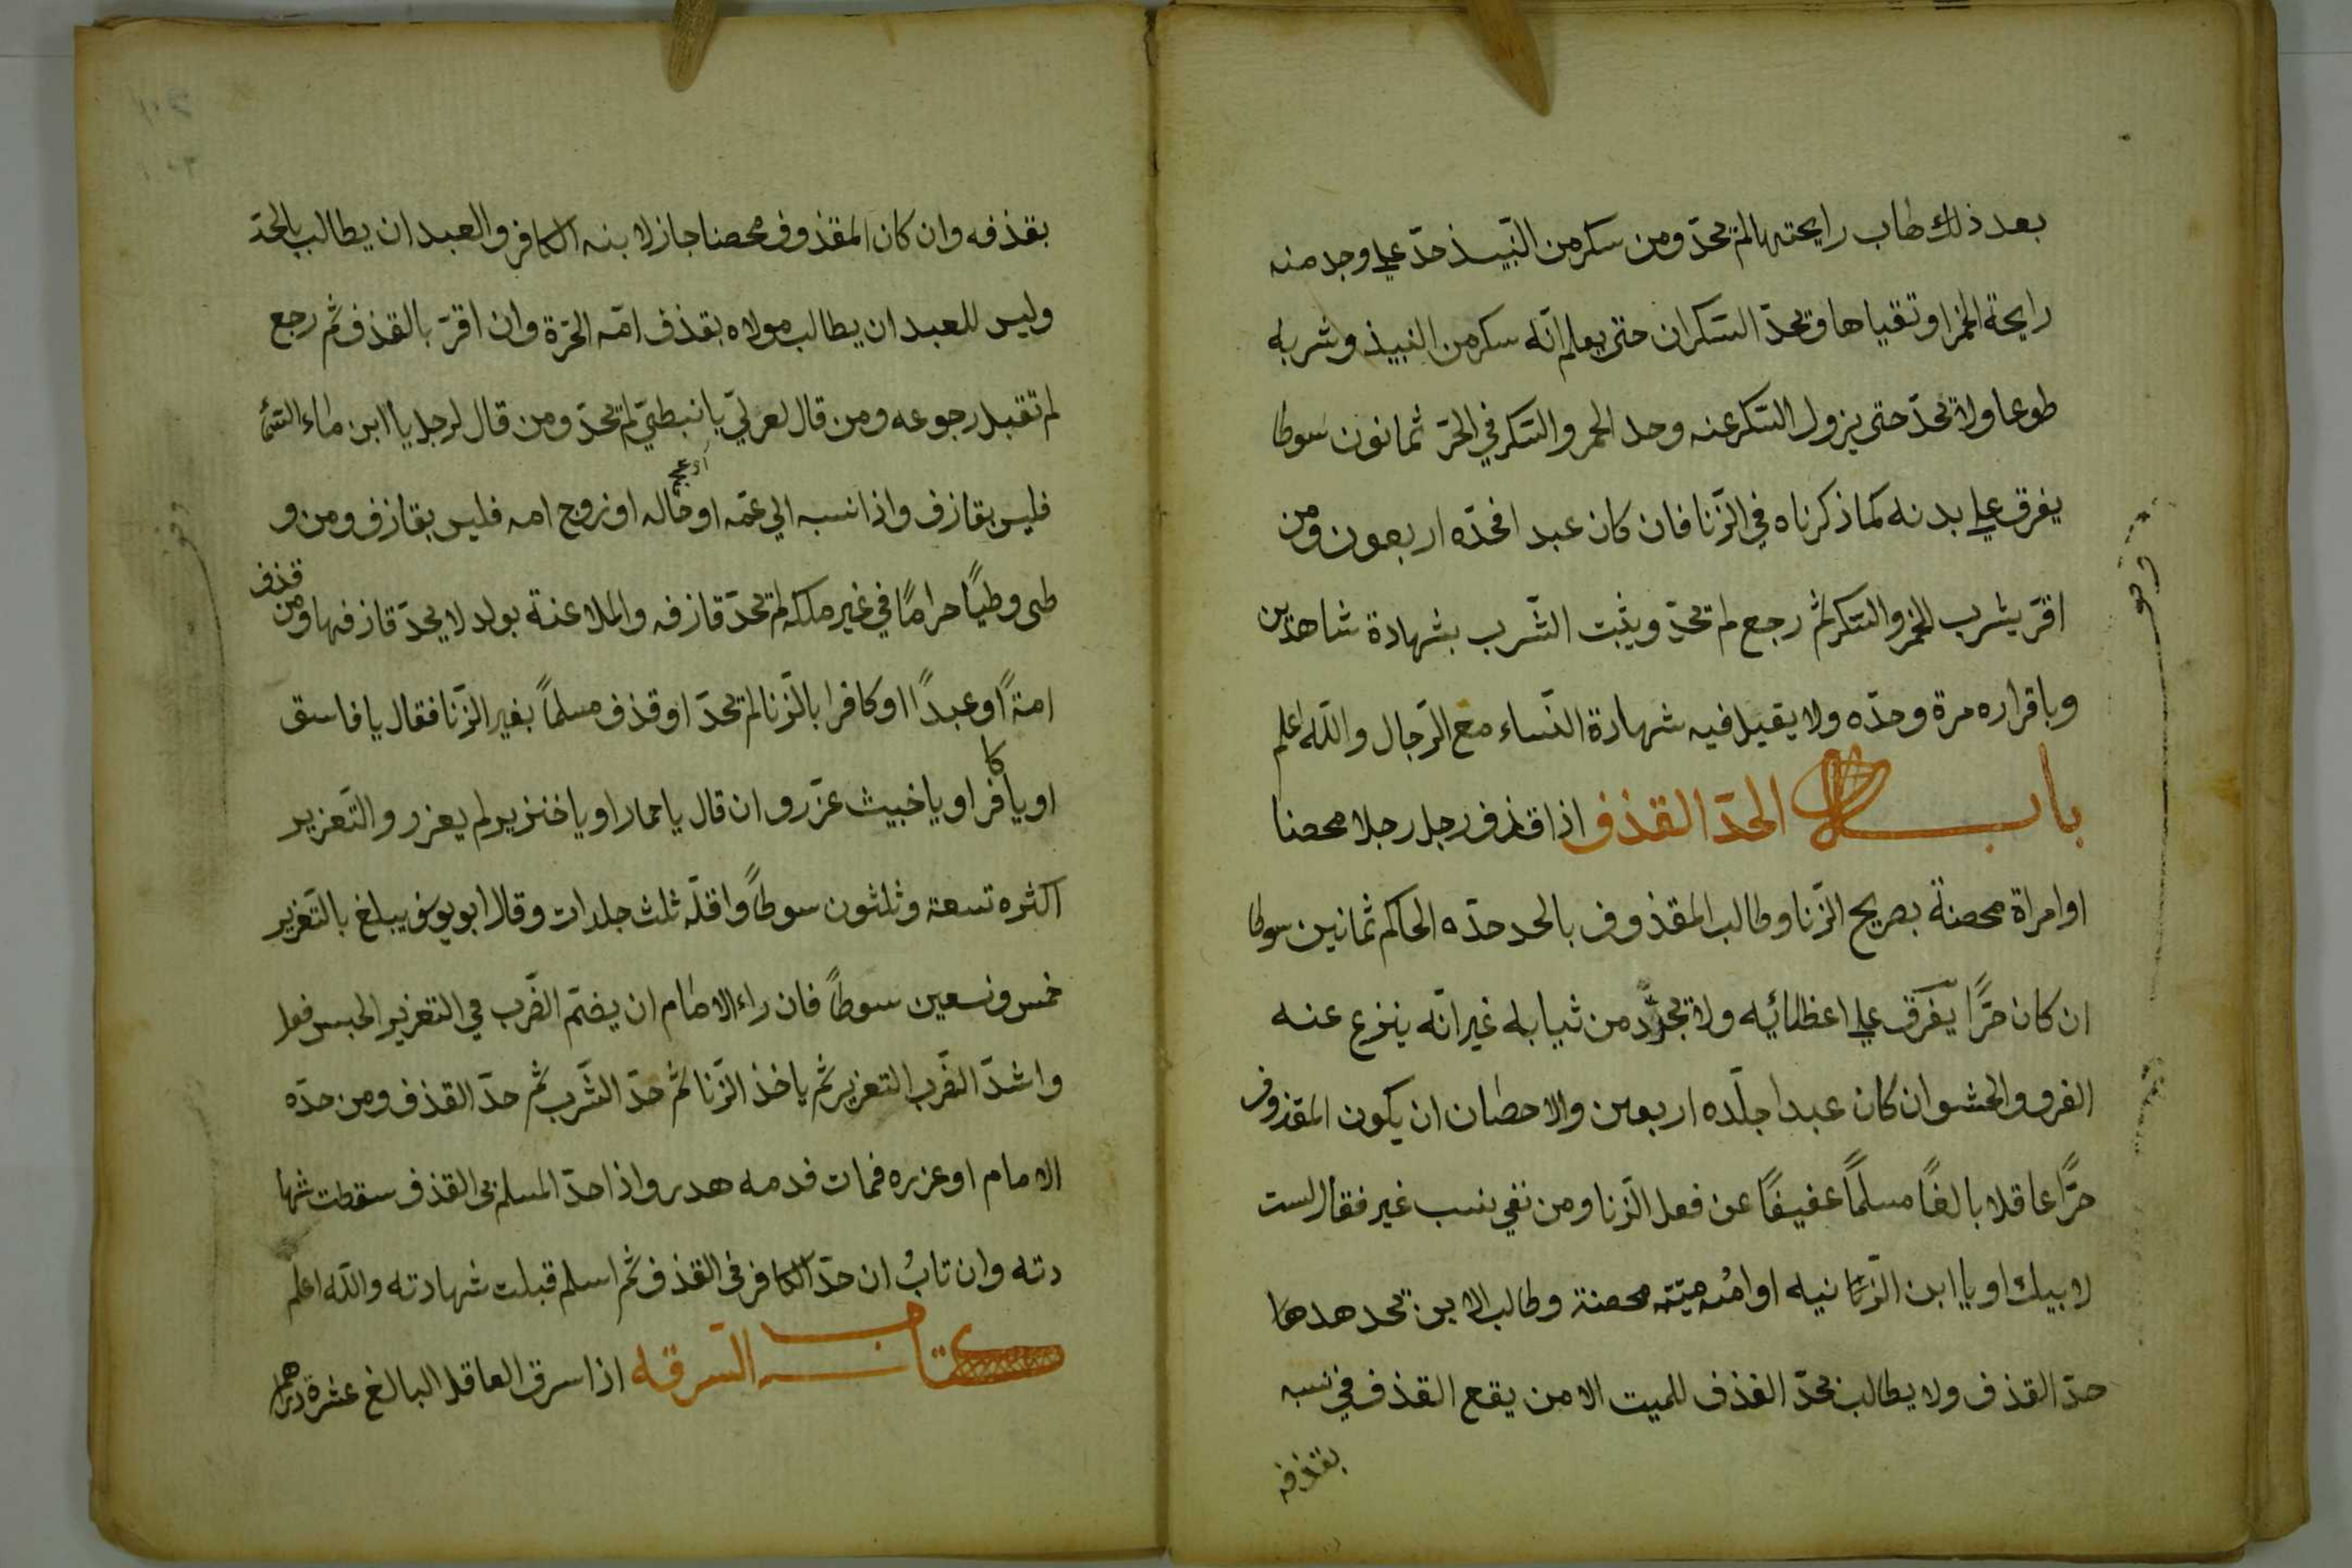 بعد ذلك طاب رايحتها لم يحدّ ومن سكر من النّبيذ حدّ علي وجد منه
رايحة الخمر او تقياها و يحدّ السّكران حتي يعلم انّه سكر من النبيذ وشربه
طوعا ولا يحدّ حتي يزول السّكر عنه وحد الخمر والسّكر في الحرّ ثمانون سوطا
يفرق علي بدنه كما ذكرناه في الزّنا فان كان عبدا فحدّه اربعون ومن
اقرّ بشرب الخمر والسّكر ثم رجع لم يحدّ ويثبت الشّرب بشهادة شاهدين
وباقراره مرة وحدّه ولا يقبل فيه شهادة النّساء مع الرّجال والله اعلم
باب الحدّ القذف اذا قذف رجل رجلا محصنا
او امراة محصنة بصريح الزّنا وطالب المقذوف بالحد حدّه الحاكم ثمانين سوطا
ان كان حرًّا يفرّق علي اعظائيه ولا يجرّد من ثيابه غير انّه ينزع عنه
الفرو والحشو ان كان عبدا جلّده اربعين والاحطان ان يكون المقذوف
حرًّا عاقلا بالغًا مسلمًا عفيفًا عن فعل الزّنا ومن نفي نسب غير فقال لست
لابيك او يا ابن الزّانيه او امّه ميّته محصنة وطالب الابن بحد هدها
حدّ القذف ولا يطالب بحدّ القذف للميت الا من يقع القذف في نسبه
بقذفه
بقذفه وان كان المقذوف محصنا جاز لابنه الكافر والعبد ان يطالب بالحدّ
وليس للعبد ان يطالب مولاه بقذف امّه الحرّة وان اقرّ بالقذف ثم رجع
لم تقبل رجوعه ومن قال لعربيّ يا نبطيّ لم يحدّ ومن قال لرجل يا ابن ماء السّماء
فليس بقازف واذا نسبه الي عمّه او خاله او زوج امه فليس بقازف ومن و
طى وطيًا حرامًا في غير ملكه لم يحدّ قازفه والملاعنة بولد لا يحدّ قازفها ومن قذف
امةً او عبدًا او كافرا بالزّنا لم يحدّ او قذف مسلمًا بغير الزّنا فقال يا فاسق
او يا كافر او يا خبيث عزّر وان قال يا حمار او يا خنزير لم يعزر والتّعزير
اكثره تسعة وثلثون سوطًا واقلّه ثلث جلدات وقال ابو يوسف يبلغ بالتّعزير
خمس وسعين سوطًا فان راء الامام ان يضمّ الضّرب في التعزير الحبس فعل
واشدّ الضّرب التعزير ثم ياخذ الزّنا ثم حدّ الشّرب ثم حدّ القذف ومن حدّه
الامام او عزره فمات فدمه هدر واذا حدّ المسلم في القذف سقطت شها
دته وان تاب ان حدّ الكافر في القذف ثم اسلم قبلت شهادته والله اعلم
كتاب السّرقه اذا سرق العاقل البالغ عشرة دراهم